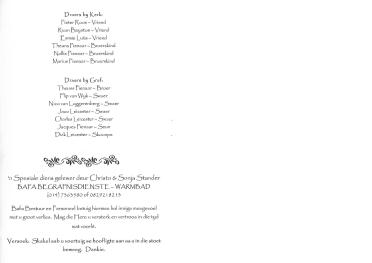 Draers by Kerk:
Pieter Roos – Vriend
Ruan Bezuidenhout – Vriend
Ernnie Lutis – Vriend
Theuns Pienaar – Broerskind
Nollie Pienaar – Broerskind
Marius Pienaar – Broerskind
Draers by Graf:
Theuns Pienaar – Broer
Flip van Wyk – Swaer
Nico van Loggerenberg – Swaer
Jaco Leicester – Swaer
Charles Leicester – Swaer
Jacques Pienaar – Seun
Dirk Leicester – Skoonpa
'n Spesiale diens gelewer deur Christo & Sonja Stander
BAFA BEGRAFNISDIENSTE - WARMBAD
Bafa Bestuur en Personeel betuig hiermee hul innige meegevoel
met u groot verlies. Mag die Here u versterk en vertroos in die tyd
wat voorlê.
Versoek: Skakel asb u voertuig se hoofligte aan as u in die stoet
beweeg. Dankie.